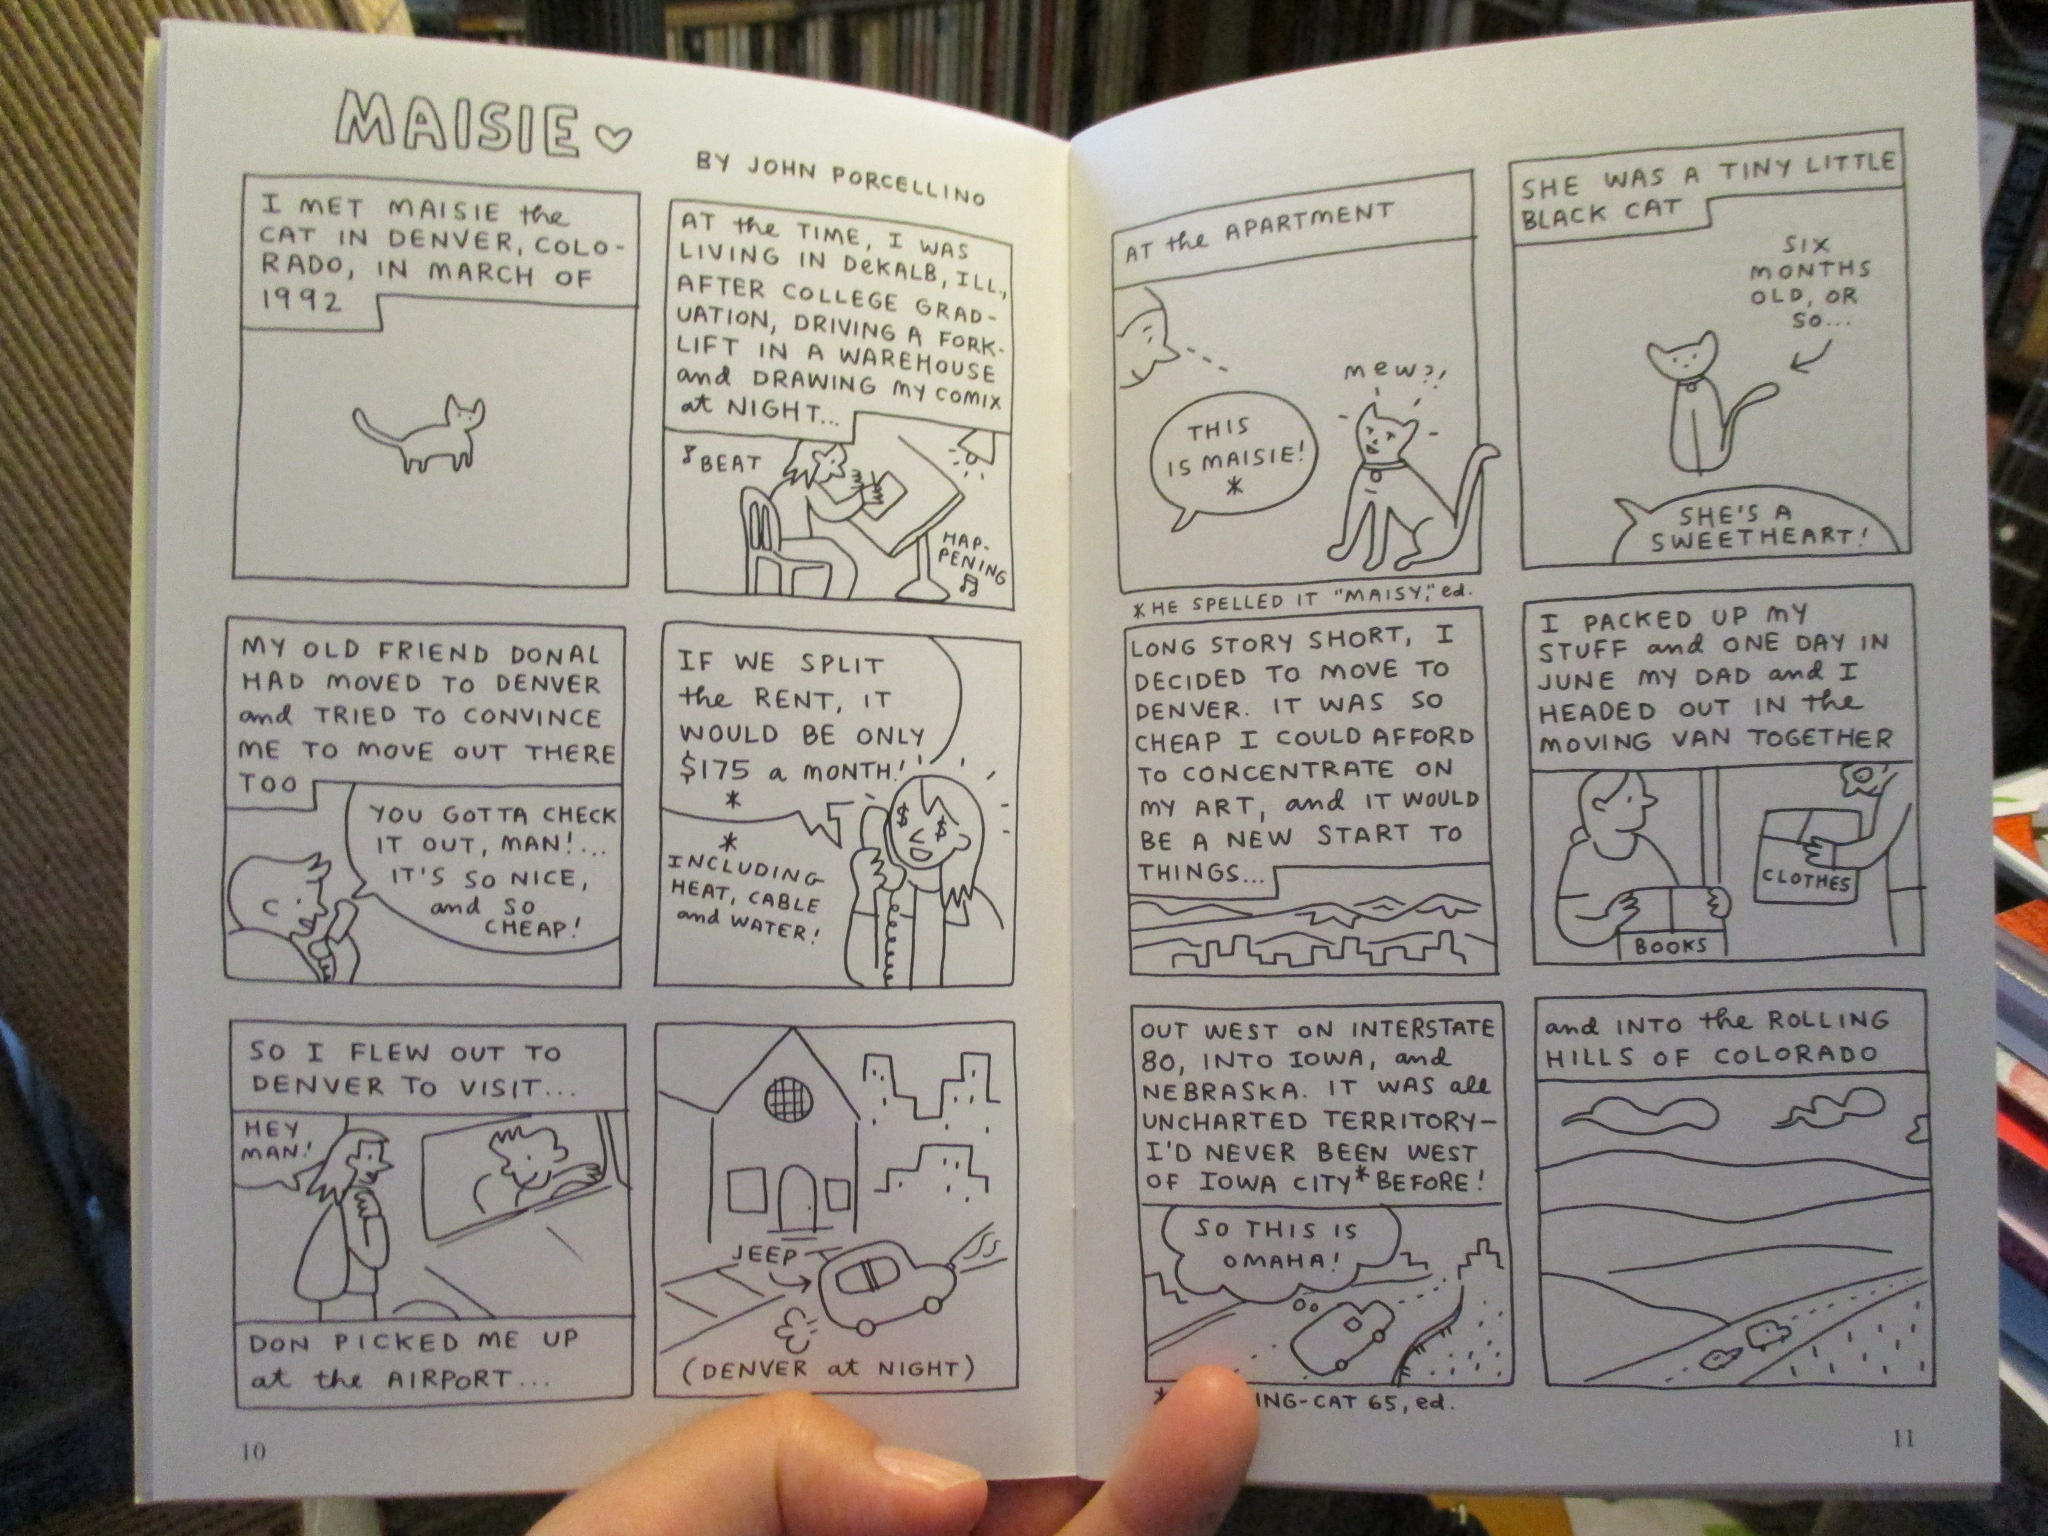 MAISIE
BY JOHN PORCELLINO
I MET MAISIE the
CAT IN DENVER, COLO-
RADO, IN MARCH OF
1992
AT the TIME, I WAS
LIVING IN DeKALB, ILL.,
AFTER COLLEGE GRAD-
UATION, DRIVING A FORK-
LIFT IN A WAREHOUSE
and DRAWING MY COMIX
at NIGHT...
BEAT
HAP-
PENING
MY OLD FRIEND DONAL
HAD MOVED TO DENVER
and TRIED TO CONVINCE
ME TO MOVE OUT THERE
TOO
YOU GOTTA CHECK
IT OUT, MAN!...
IT'S SO NICE,
and SO
CHEAP!
IF WE SPLIT
the RENT, IT
WOULD BE ONLY
$175 a MONTH!
*
*
INCLUDING
HEAT, CABLE
and WATER!
$ $
SO I FLEW OUT TO
DENVER TO VISIT...
HEY
MAN!
DON PICKED ME UP
at the AIRPORT...
JEEP
(DENVER at NIGHT)
10
AT the APARTMENT
mew?!
THIS
IS MAISIE!
*
*HE SPELLED IT "MAISY," ed.
SHE WAS A TINY LITTLE
BLACK CAT
SIX
MONTHS
OLD, OR
SO...
SHE'S A
SWEETHEART!
LONG STORY SHORT, I
DECIDED TO MOVE TO
DENVER. IT WAS SO
CHEAP I COULD AFFORD
TO CONCENTRATE ON
MY ART, and IT WOULD
BE A NEW START TO
THINGS...
I PACKED UP MY
STUFF and ONE DAY IN
JUNE MY DAD and I
HEADED OUT IN the
MOVING VAN TOGETHER
CLOTHES
BOOKS
OUT WEST ON INTERSTATE
80, INTO IOWA, and
NEBRASKA. IT WAS all
UNCHARTED TERRITORY—
I'D NEVER BEEN WEST
OF IOWA CITY* BEFORE!
SO THIS IS
OMAHA!
* ING-CAT 65, ed.
and INTO the ROLLING
HILLS OF COLORADO
11